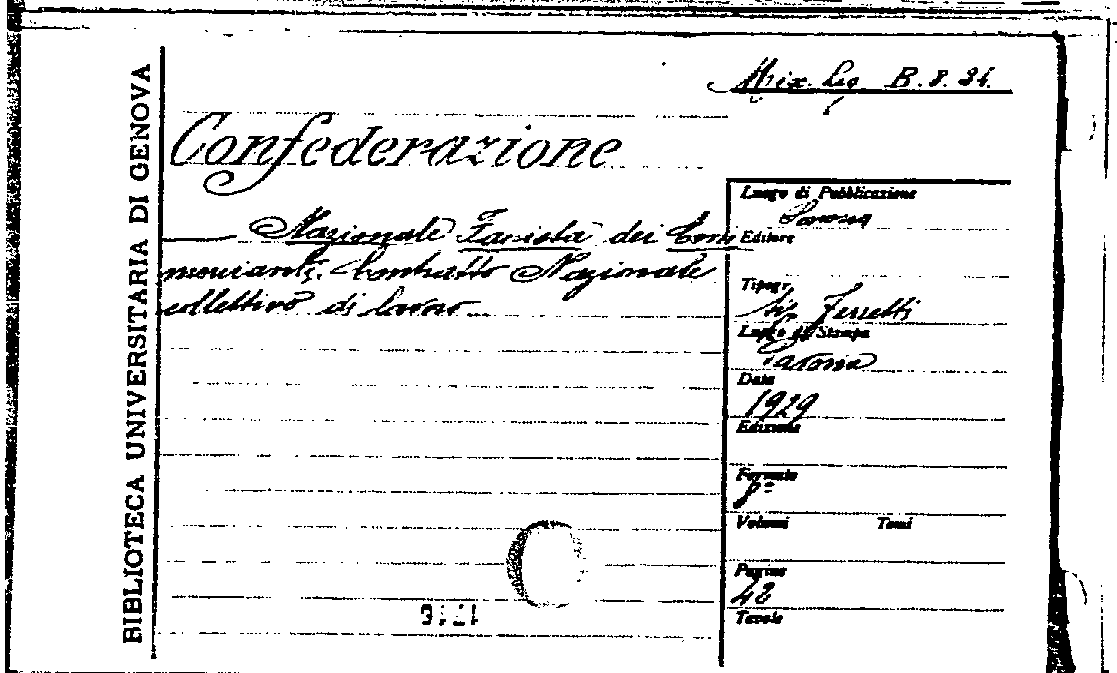 BIBLIOTECA UNIVERSITARIA DI GENOVA
Mix. Leg. B. 8. 34.
Confederazione
Nazionale Fascista dei Com
mercianti. Contratto Nazionale
collettivo di lavoro
Luogo di Pubblicazione
Savona
Editore
Tipogr.
Tip. Ferretti
Luogo di Stampa
Savona
Data
1929
Edizione
Formato
8º
Volumi Tomi
Pagine
42
Tavole